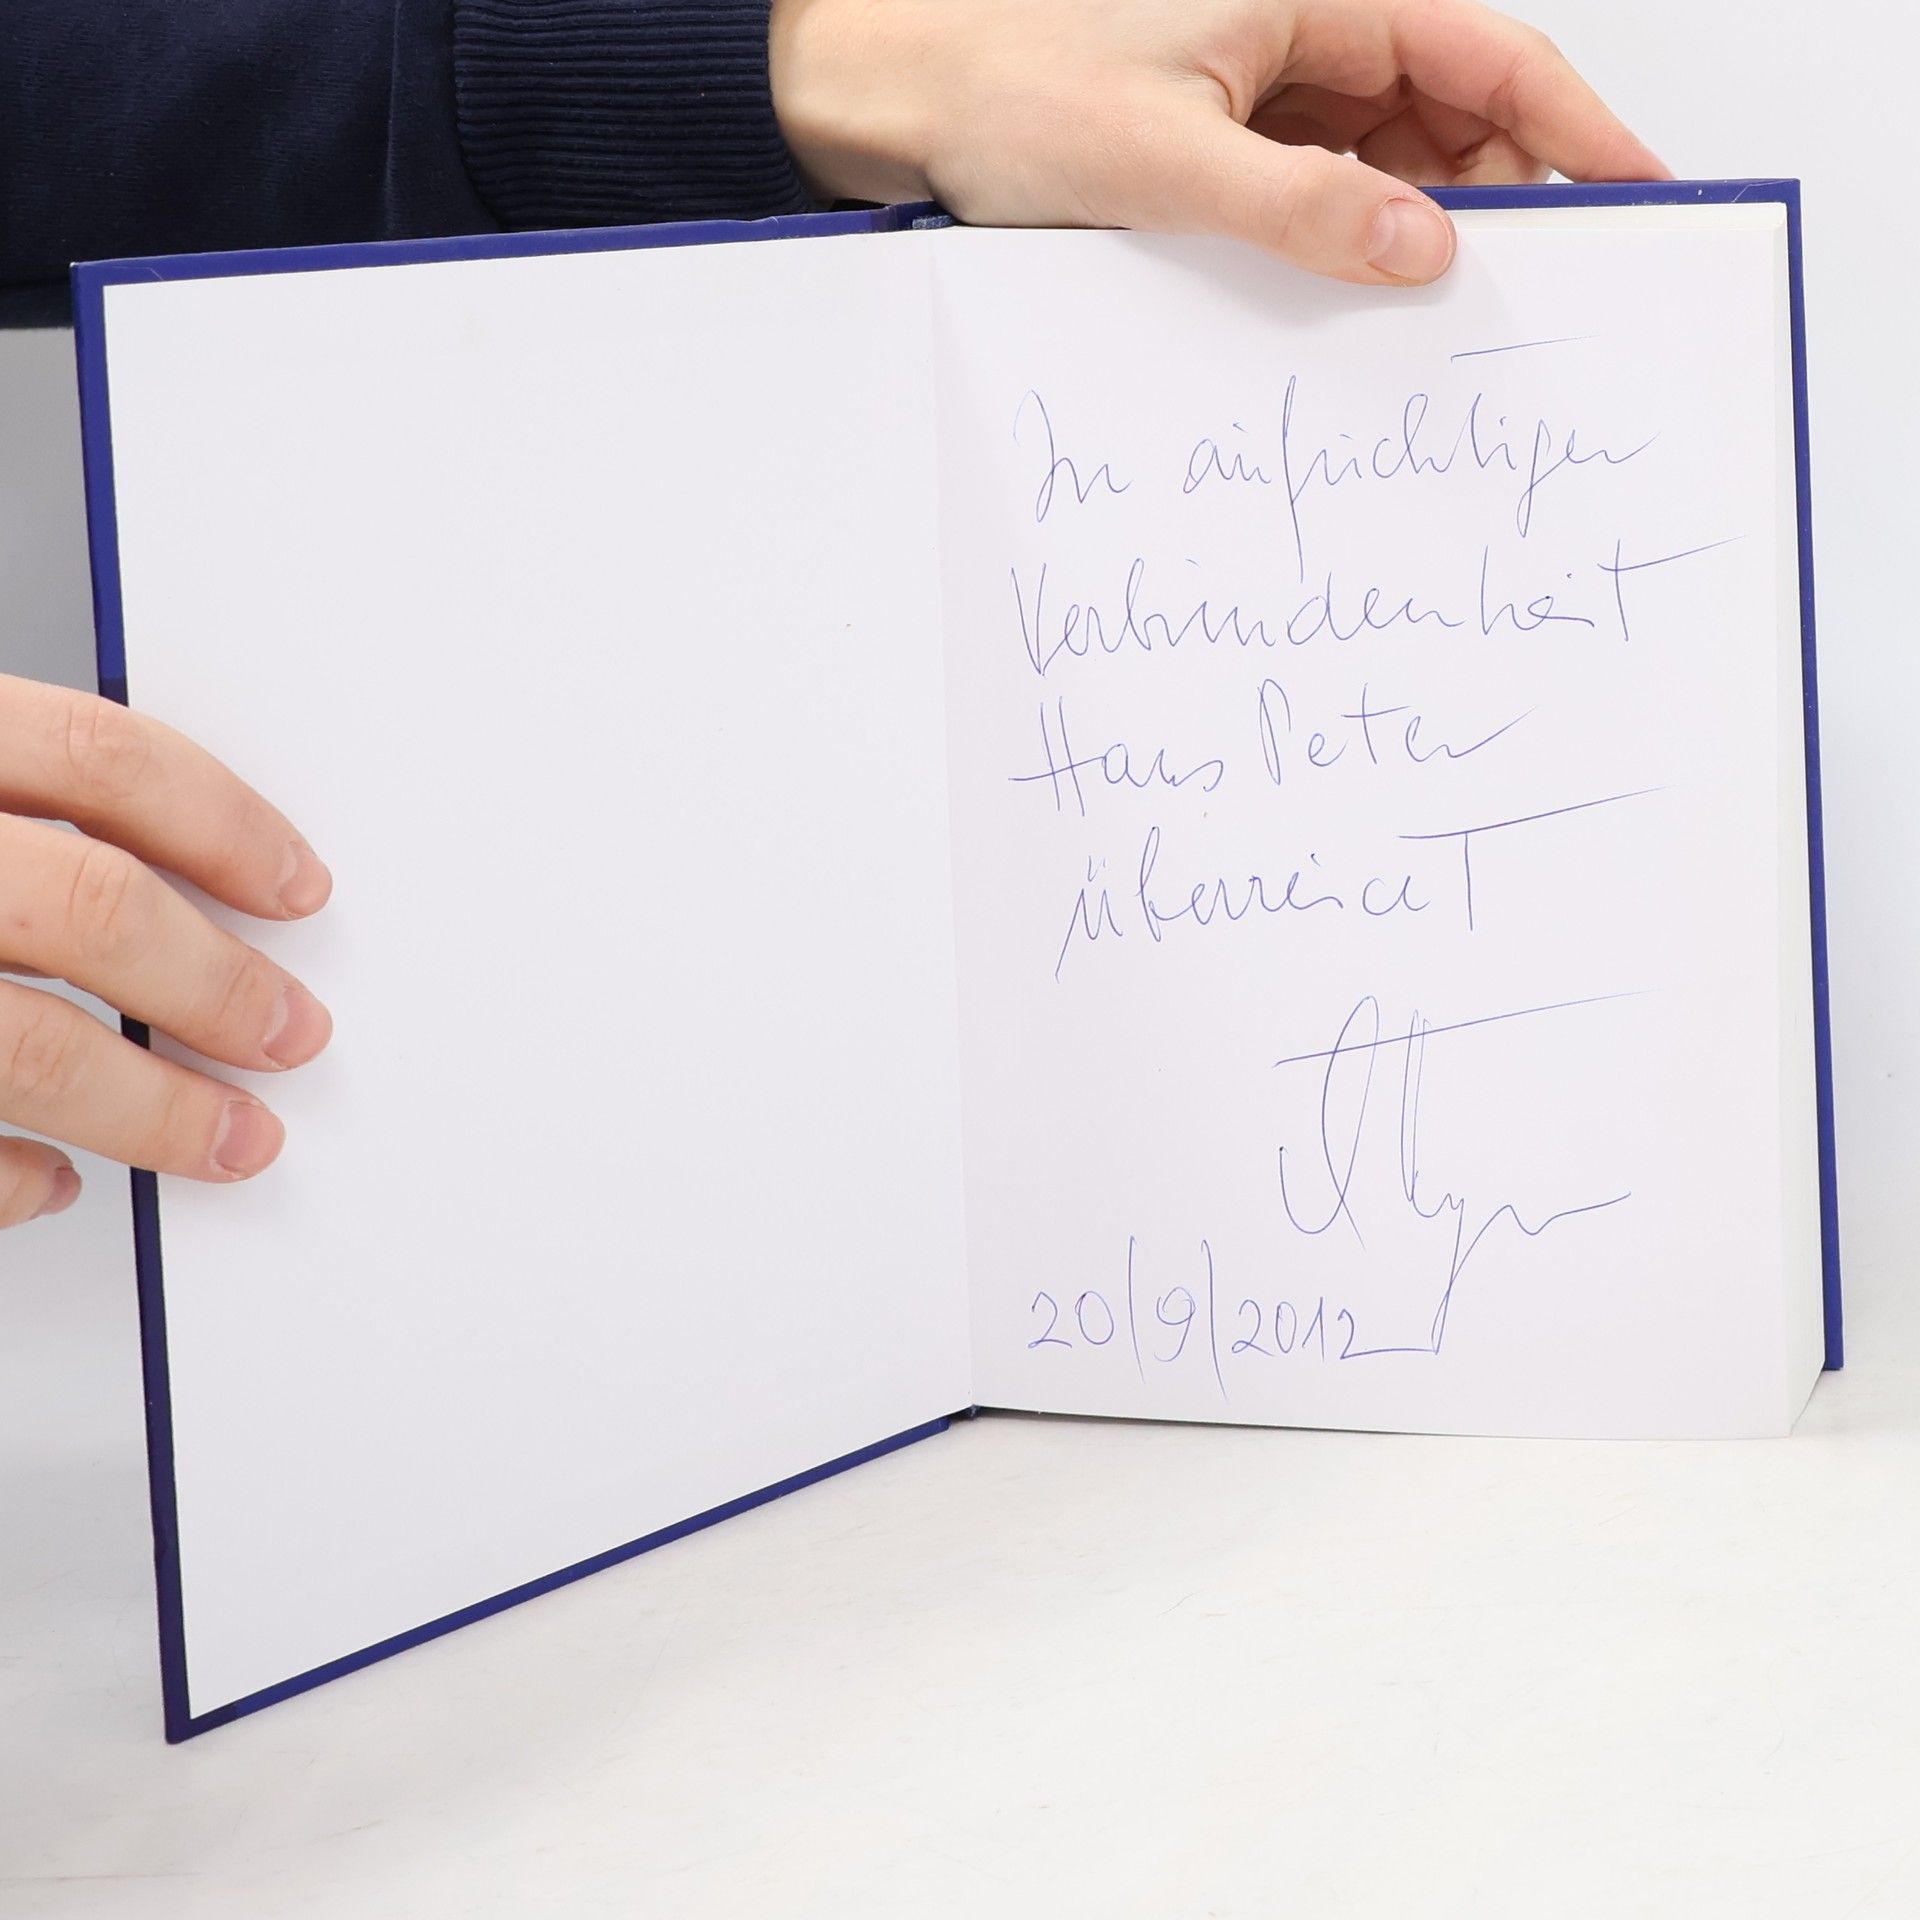 In aufrichtiger
Verbundenheit
Hans Peter
überreicht
20/9/2012